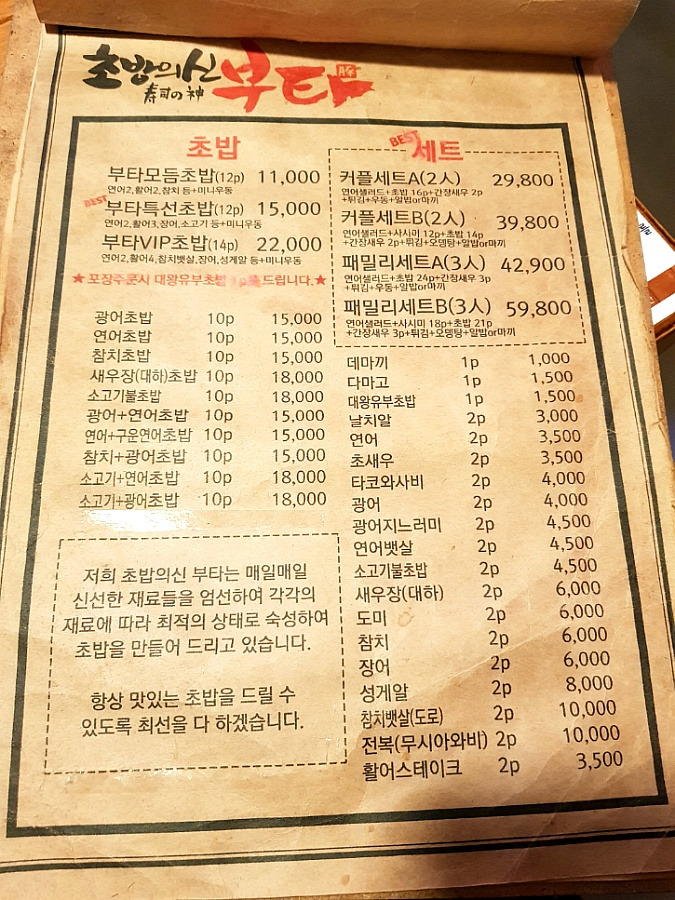 초밥의신 부타
寿司の神
豚
초밥
부타모듬초밥(12p) 11,000
연어2,활어2,참치 등+미니우동
BEST
부타특선초밥(12p) 15,000
연어2,활어3,장어,소고기 등+미니우동
부타VIP초밥(14p) 22,000
연어2,활어4,참치뱃살,장어,성게알 등+미니우동
★포장주문시 대왕유부초밥 드립니다.★
광어초밥 10p 15,000
연어초밥 10p 15,000
참치초밥 10p 15,000
새우장(대하)초밥 10p 18,000
소고기불초밥 10p 18,000
광어+연어초밥 10p 15,000
연어+구운연어초밥 10p 15,000
참치+광어초밥 10p 15,000
소고기+연어초밥 10p 18,000
소고기+광어초밥 10p 18,000
저희 초밥의신 부타는 매일매일
신선한 재료들을 엄선하여 각각의
재료에 따라 최적의 상태로 숙성하여
초밥을 만들어 드리고 있습니다.
항상 맛있는 초밥을 드릴 수
있도록 최선을 다 하겠습니다.
BEST
세트
커플세트A(2人) 29,800
연어샐러드+초밥 16p+간장새우 2p
+튀김+우동+알밥or마끼
커플세트B(2人) 39,800
연어샐러드+사시미 12p+초밥 14p
+간장새우 2p+튀김+오뎅탕+알밥or마끼
패밀리세트A(3人) 42,900
연어샐러드+초밥 24p+간장새우 3p
+튀김+우동+알밥or마끼
패밀리세트B(3人) 59,800
연어샐러드+사시미 18p+초밥 21p
+간장새우 3p+튀김+오뎅탕+알밥or마끼
데마끼 1p 1,000
다마고 1p 1,500
대왕유부초밥 1p 1,500
날치알 2p 3,000
연어 2p 3,500
초새우 2p 3,500
타코와사비 2p 4,000
광어 2p 4,000
광어지느러미 2p 4,500
연어뱃살 2p 4,500
소고기불초밥 2p 4,500
새우장(대하) 2p 6,000
도미 2p 6,000
참치 2p 6,000
장어 2p 6,000
성게알 2p 8,000
참치뱃살(도로) 2p 10,000
전복(무시아와비) 2p 10,000
활어스테이크 2p 3,500